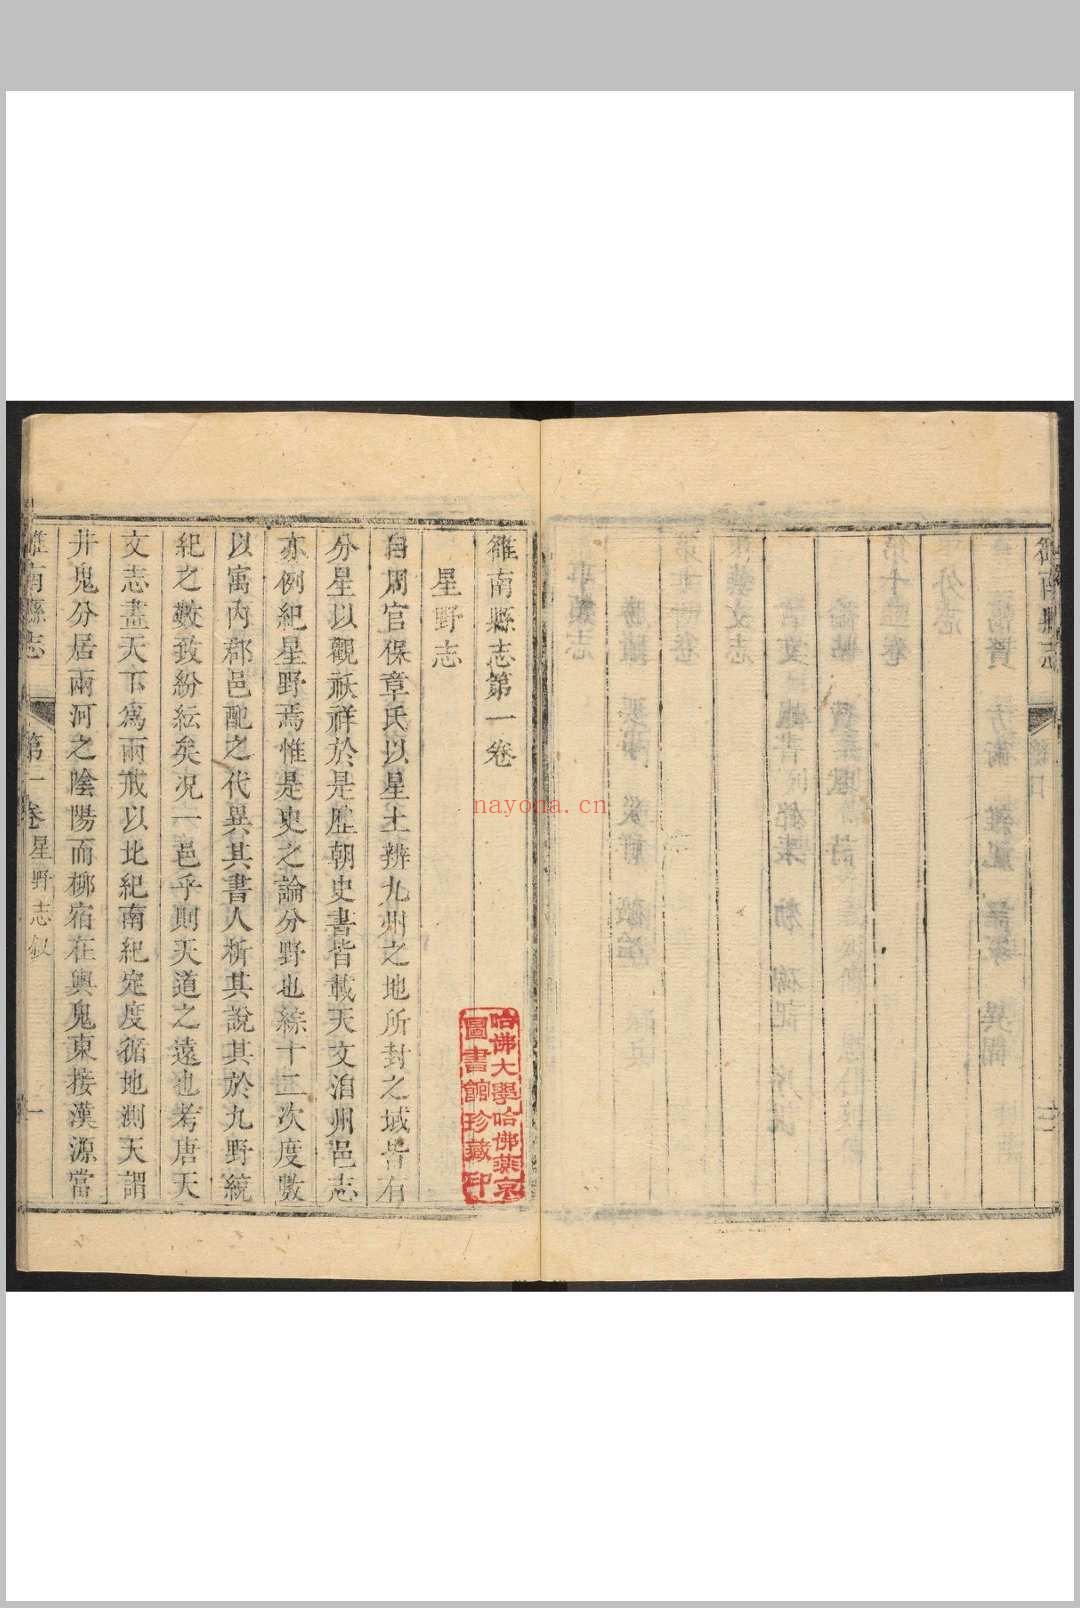 雒南縣志
雒南縣志第一卷
星野志
自周官保章氏以星土辨九州之地所封之域皆有
分星以觀祅祥於是歷朝史書皆載天文洎州邑志
亦例紀星野焉惟是史之論分野也綜十二次度數
以寓内郡邑配之代異其書人析其說其於九野統
紀之數致紛紜矣况一邑乎則天道之遠也考唐天
文志畫天下爲兩戒以北紀南紀定度循地測天謂
井鬼分居兩河之陰陽而柳宿在輿鬼東接漢源當
雒南縣志 第一卷 星野志叙 一
哈佛大學哈佛燕京
圖書館珍藏印
nayona.cn